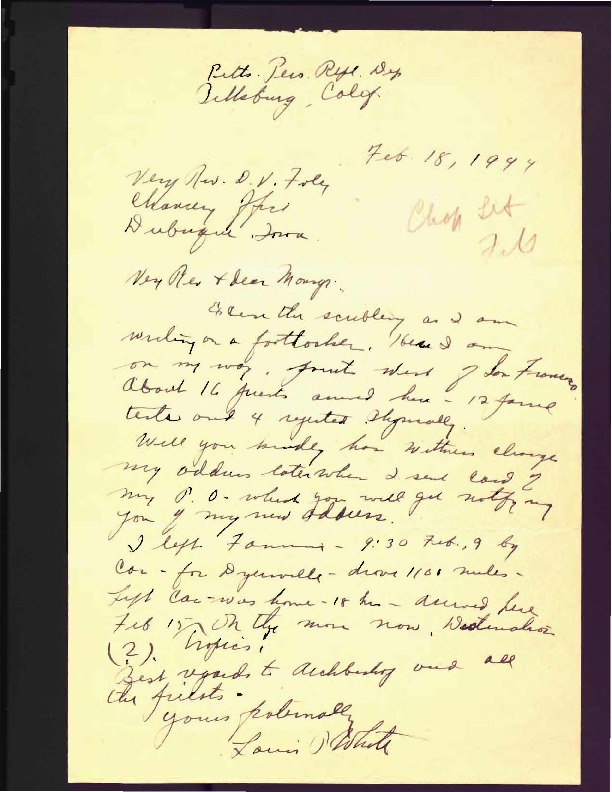 Pitts. Pers. Repl. Dep
Pittsburg, Calif.
Feb. 18, 1944
Very Rev. D. V. Foley
Chancery Office
Dubuque Iowa
Chap Let
File
Very Rev & dear Monsgr.
Excuse the scribling as I am
writing on a footlocker. Here I am
on my way. points West of San Francisco.
About 16 priests arrived here - 12 passed
tests and 4 rejected physically.
Will you kindly have Witness change
my address later when I sent card of
my P. O. - which you will get notifying
you of my new address.
I left - 9:30 Feb., 9 by
car - for Dyersville - drove 1101 miles -
Left Car - was home - 18 hrs - arrived here
Feb 15 - On the move now. Destination
(?). Tropics!
Best regards to Archbishop and all
the priests -
Yours fraternally
Louis White